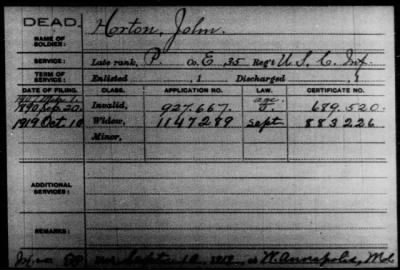 DEAD.
NAME OF SOLDIER: Horton, John.
SERVICE: Late rank, P. Co. E, 35 Reg't U.S.C. Inf.
TERM OF SERVICE: Enlisted , 1 Discharged , 1
DATE OF FILING. CLASS. APPLICATION NO. LAW. CERTIFICATE NO.
1890 Invalid, 927.667. J. 689.520.
1919 Oct. 10 Widow, 1147289 Sept 883226
Minor,
ADDITIONAL SERVICES:
REMARKS:
Sept. 10, 1919, at W. Annapolis, Md